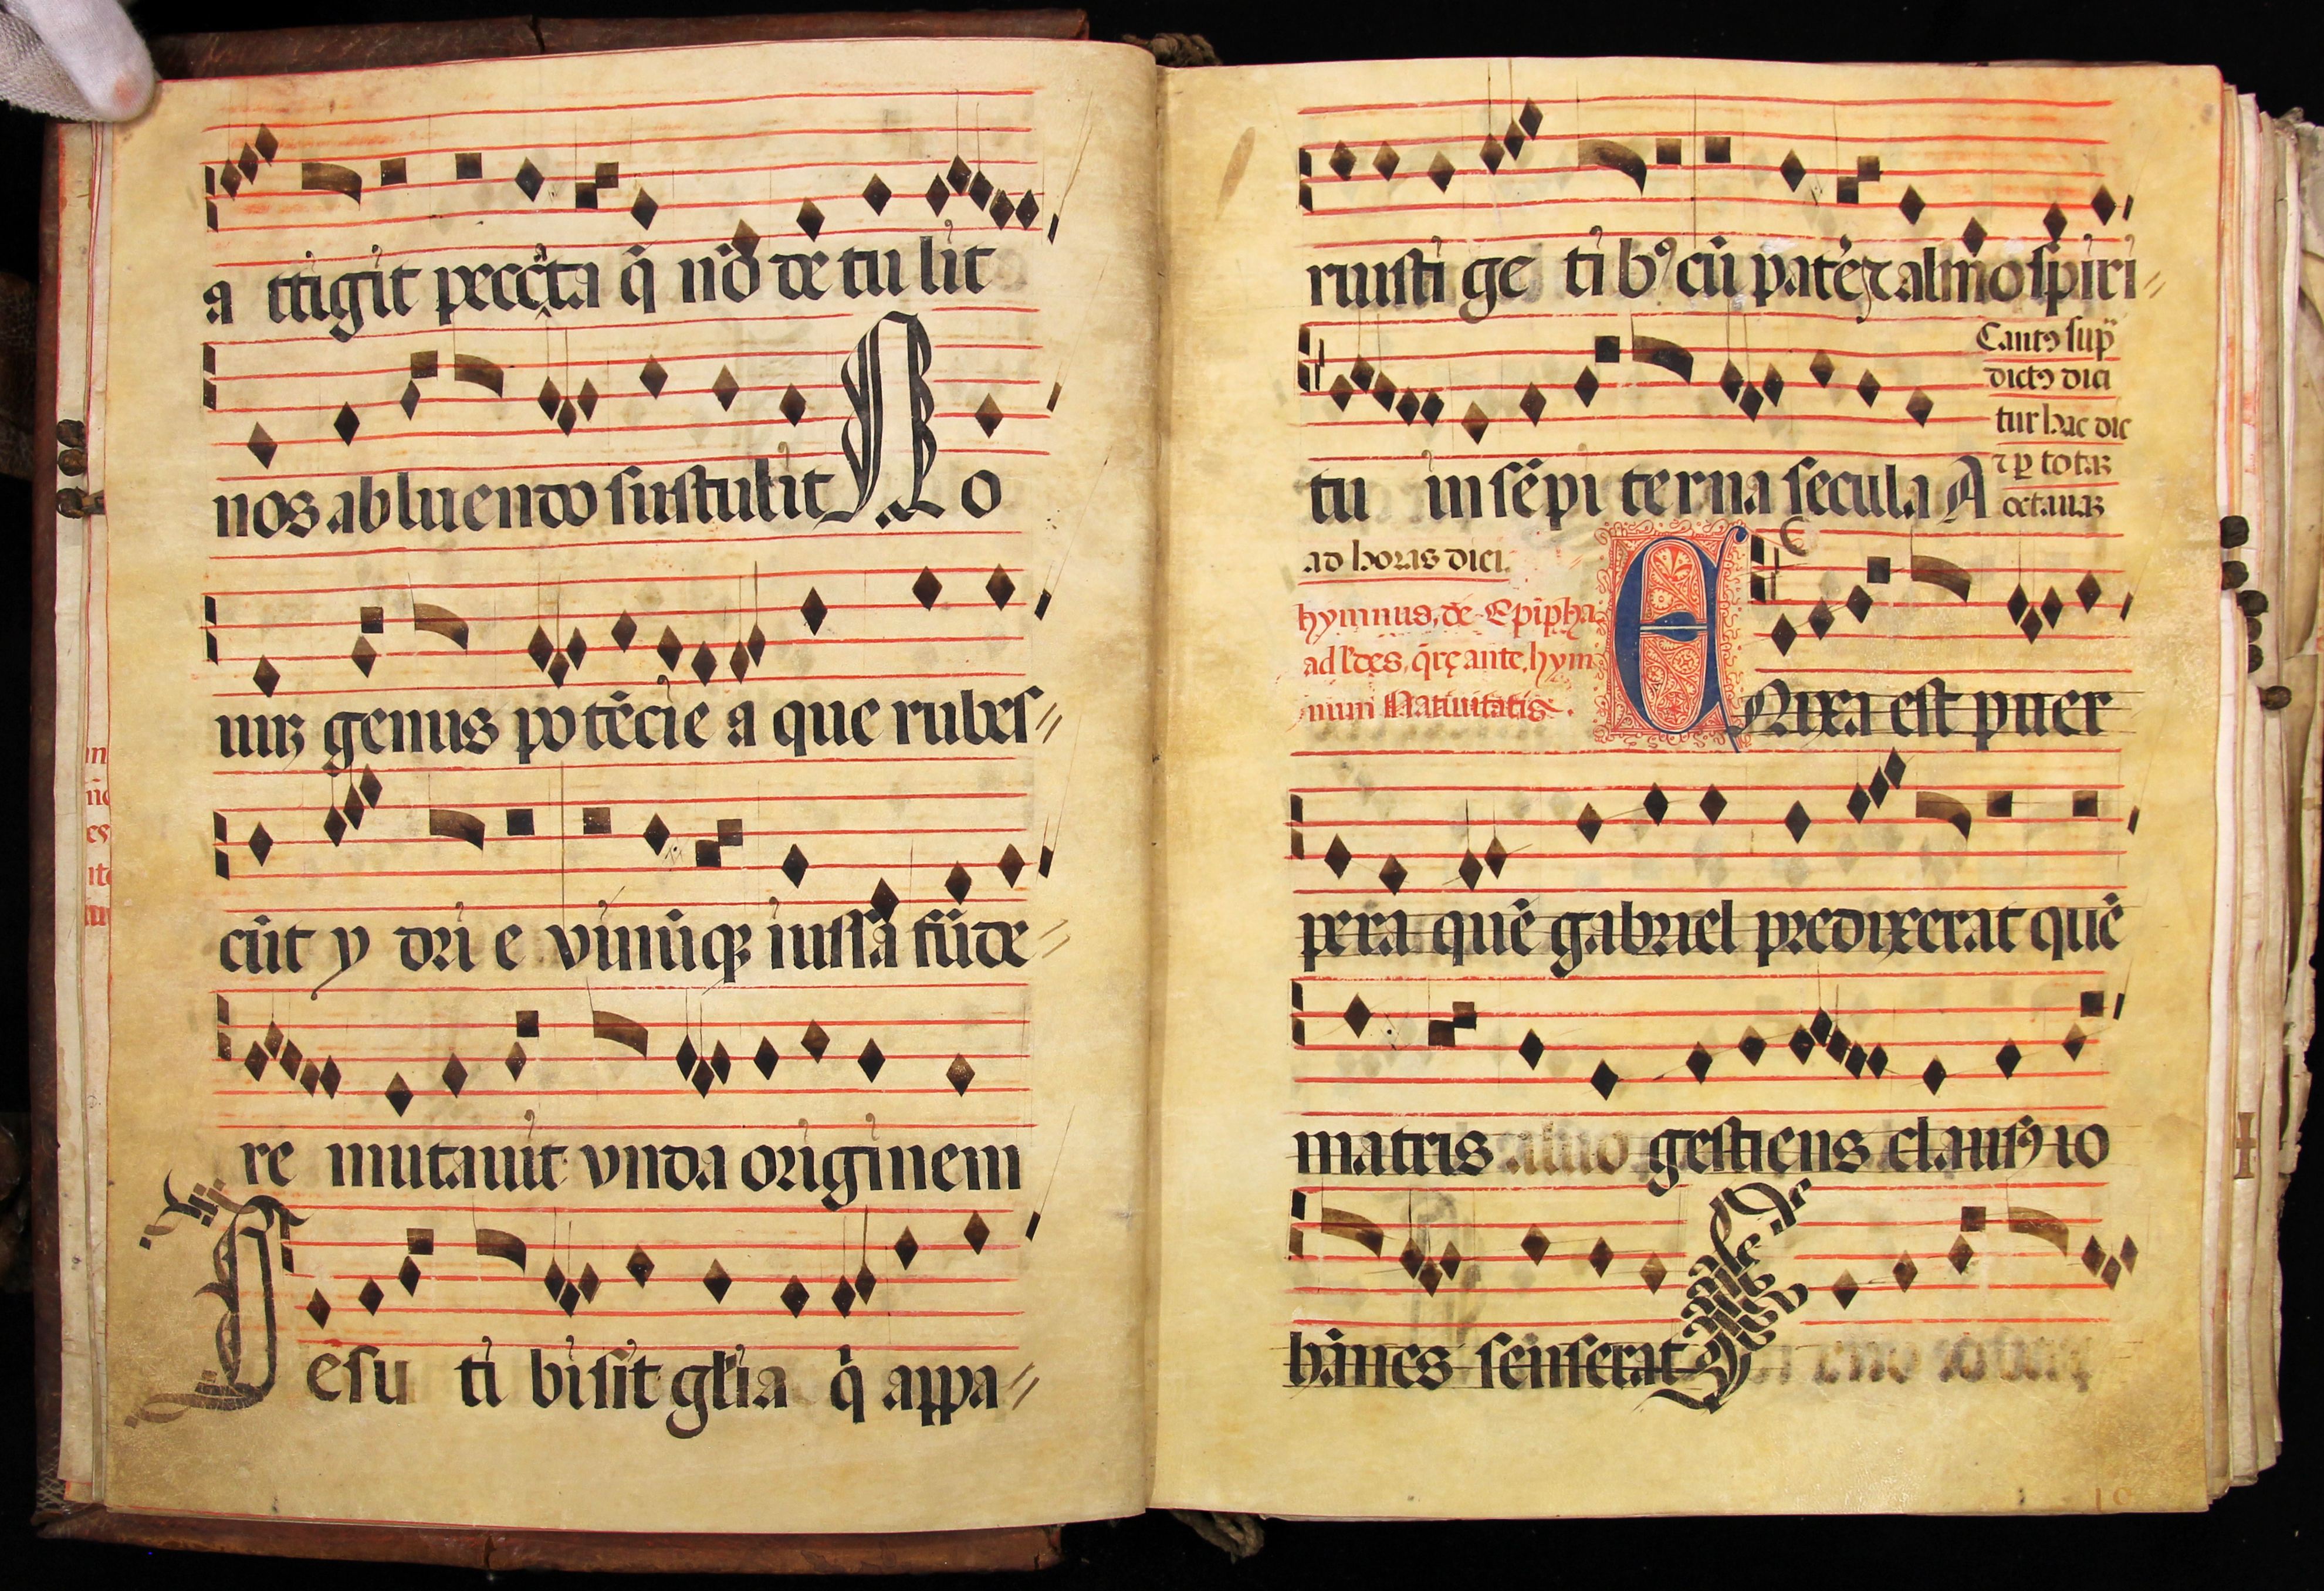 a ttigit peccãta q̃ nõ de tu lit
nos ab luendo sustulit No
uuꝫ genus potẽcie a que rubes
cũt y dri e vinũqꝫ iussa fũde
re mutauit vnda originem
Iesu ti bi sit glĩa q̃ appa
ruisti gẽ ti bꝰ cũ patre ⁊ almo spiri
tu in sẽpi terna secula A
Cantꝰ sup̃
dictꝰ dici
tur hac die
⁊ ꝑ totaꝫ
octauaꝫ
ad horas dici.
hymnus, de Epipha.
ad l'des, q̃rę ante, hym
num Natiuitatis.
ENixa est puer
pera quẽ gabriel predixerat quẽ
matris aluo gestiens clausꝰ io
hãnes senserat